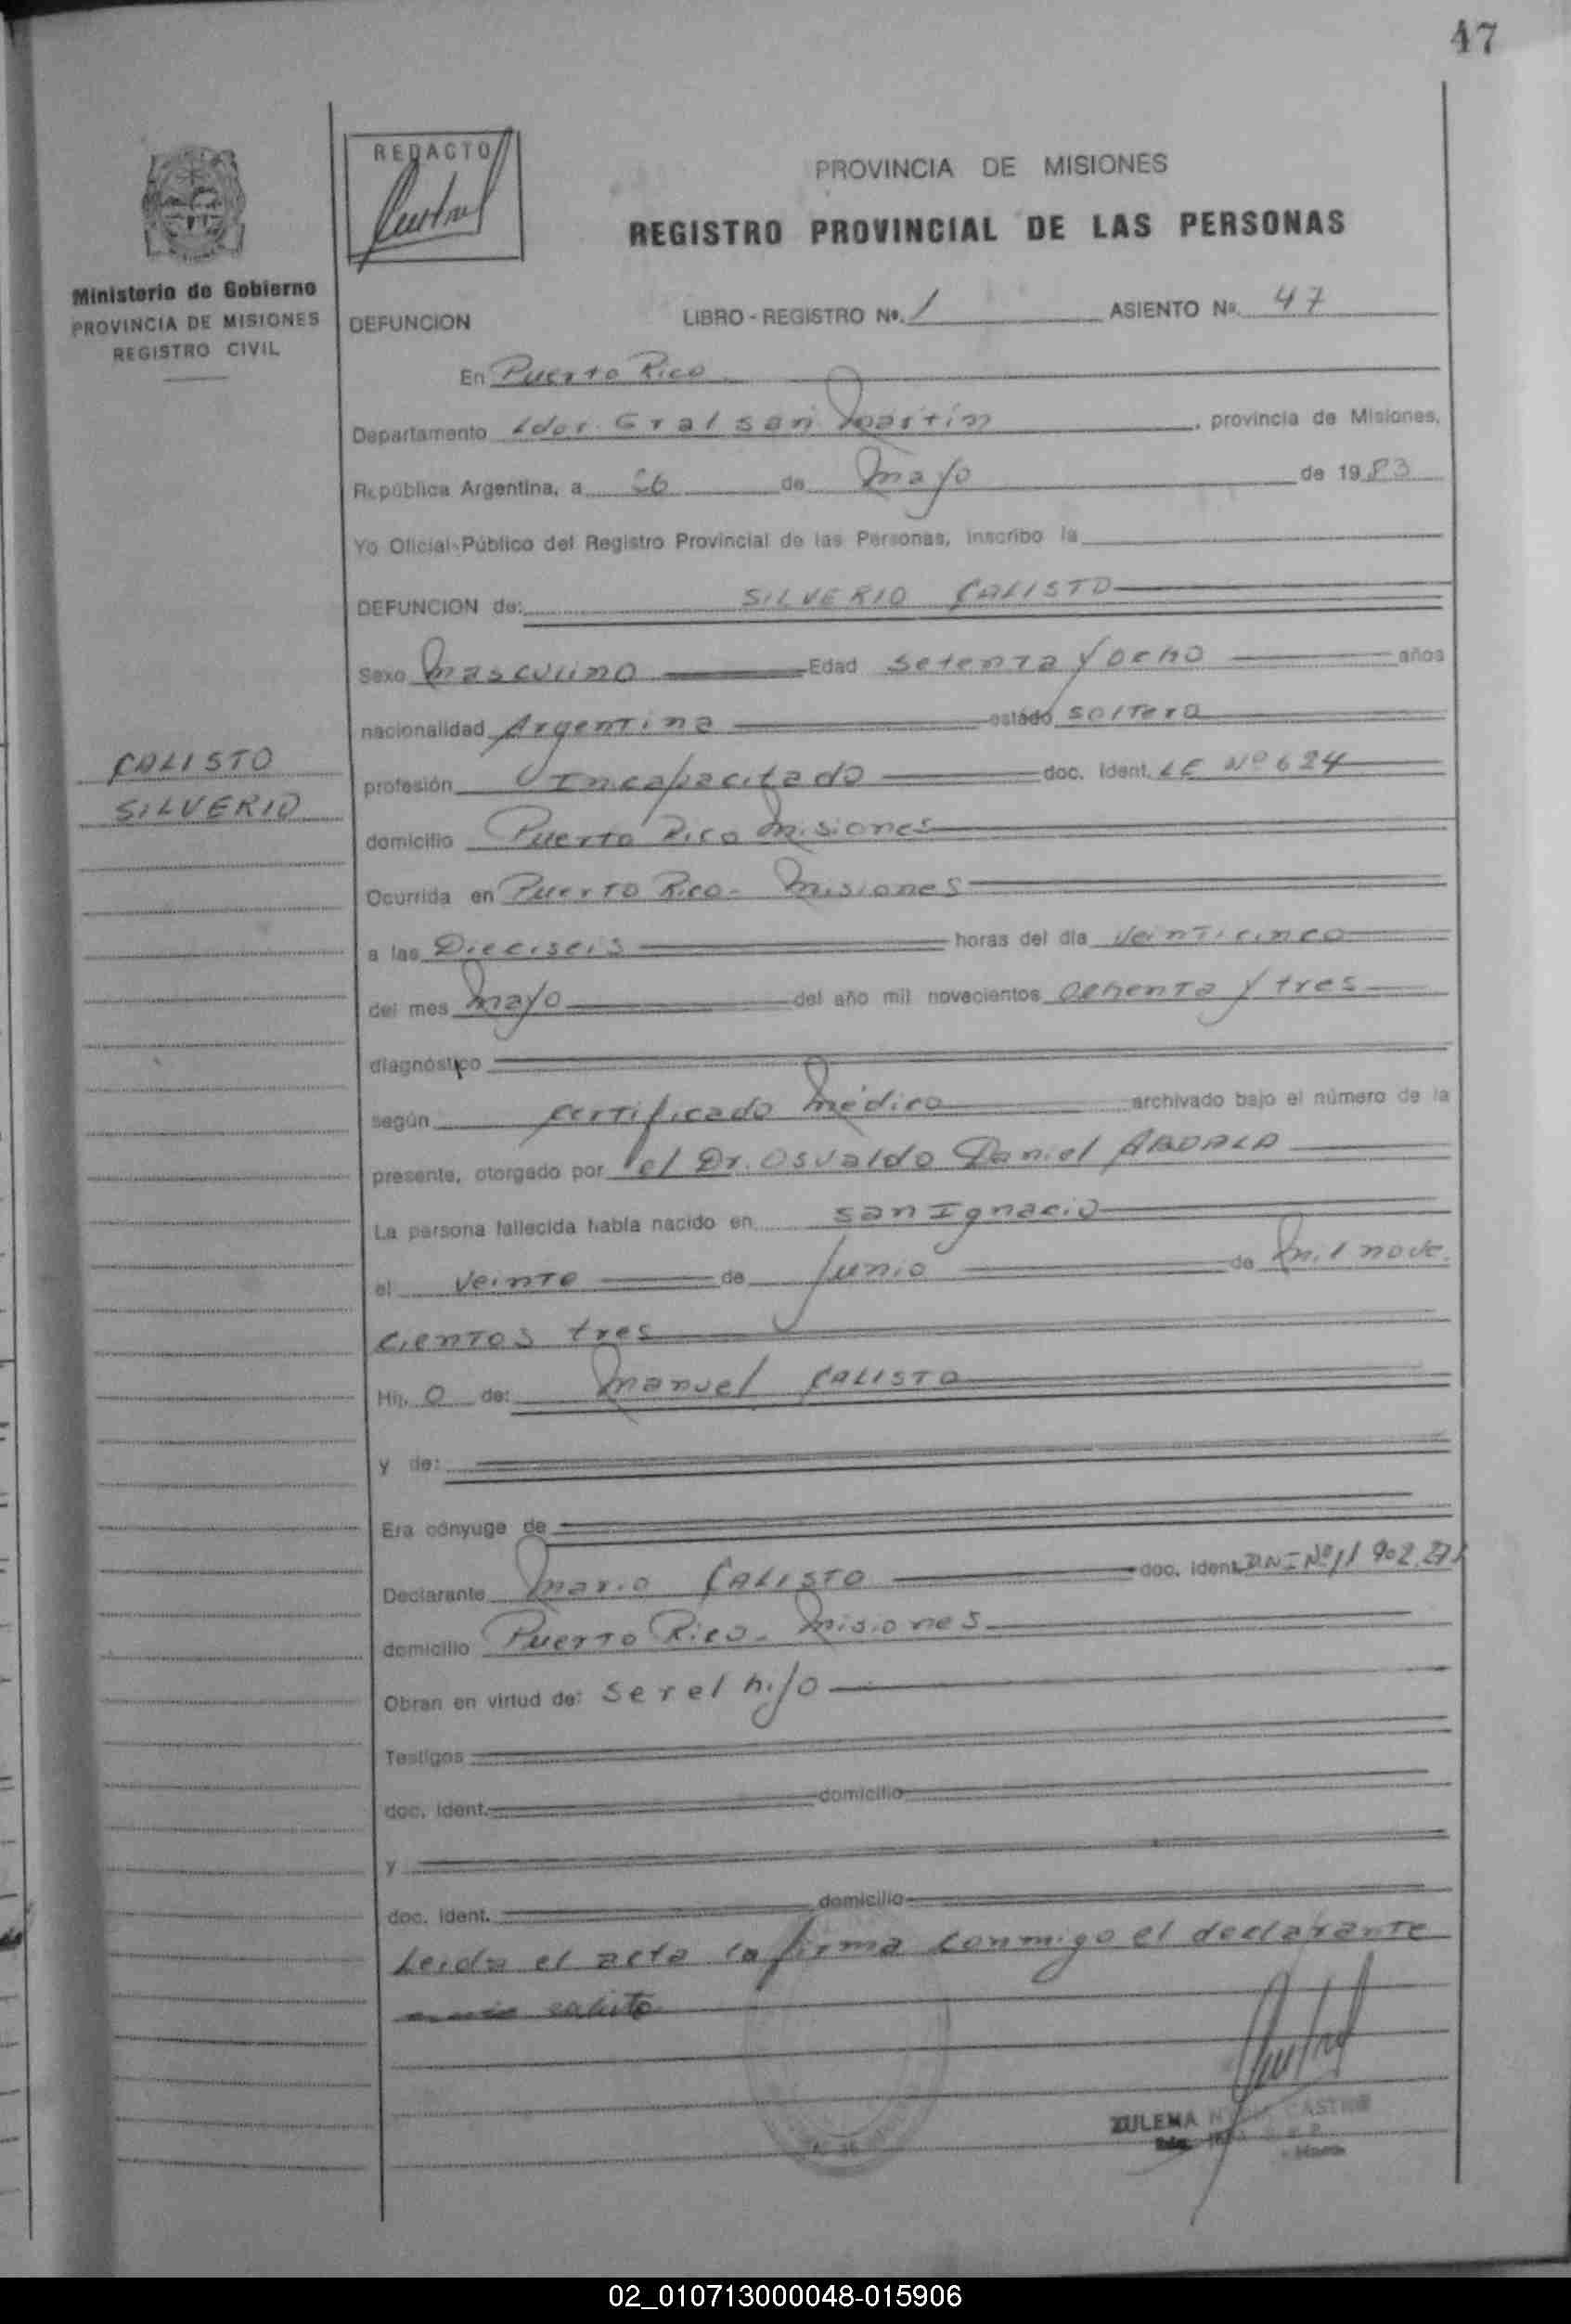 47
REDACTO
PROVINCIA DE MISIONES
REGISTRO PROVINCIAL DE LAS PERSONAS
Ministerio de Gobierno
PROVINCIA DE MISIONES
REGISTRO CIVIL
DEFUNCION LIBRO - REGISTRO Nº. 1 ASIENTO Nº. 47
En Puerto Rico
Departamento Ldor. Gral san Martin, provincia de Misiones,
República Argentina, a 26 de Mayo de 1983
Yo Oficial-Público del Registro Provincial de las Personas, inscribo la
DEFUNCION de: SILVERIO CALISTO
Sexo Masculino Edad setenta y ocho años
nacionalidad Argentina estado soltero
CALISTO
SILVERIO
profesión Incapacitado doc. ident. LE Nº 624
domicilio Puerto Rico Misiones
Ocurrida en Puerto Rico - Misiones
a las Dieciseis horas del día veinticinco
del mes Mayo del año mil novecientos ochenta y tres
diagnóstico
según certificado Médico archivado bajo el número de la
presente, otorgado por el Dr. Osvaldo Daniel ABDALA
La persona fallecida había nacido en san Ignacio
el veinte de Junio de Mil nove
cientos tres
Hij. o de: Manuel CALISTO
y de:
Era cónyuge de
Declarante Mario CALISTO doc. ident. DNI Nº 11 902.
domicilio Puerto Rico - Misiones
Obran en virtud de: ser el hijo
Testigos
doc. ident. domicilio
y
doc. ident. domicilio
Leida el acta la firma conmigo el declarante
calisto
ZULEMA CASTRO
02_010713000048-015906